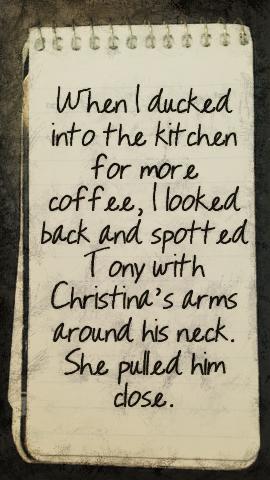 When I ducked
into the kitchen
for more
coffee, I looked
back and spotted
Tony with
Christina's arms
around his neck.
She pulled him
close.